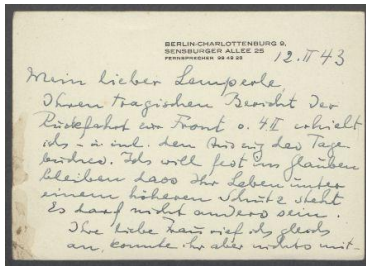 BERLIN-CHARLOTTENBURG 9,
SENSBURGER ALLEE 25
FERNSPRECHER 99 43 25
12. II 43
Mein lieber Lemperle,
Ihren tragischen Bericht der
Rückfahrt zur Front v. 4. II erhielt
ich – u. inl. den Auszug des Tage-
buches. Ich will fest im Glauben
bleiben dass Ihr Leben unter
einem höheren Schutz steht
Es darf nicht anders sein.
Ihre liebe Frau rief ich gleich
an, konnte ihr aber nichts mit-